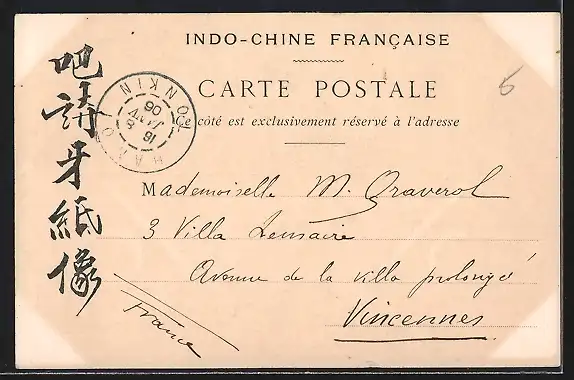 INDO-CHINE FRANÇAISE
CARTE POSTALE
Ce côté est exclusivement réservé à l'adresse
HANOI TONKIN
18 JANV 06
5
吧請牙紙像
Mademoiselle M. Graverol
3 Villa Lemaire
Avenue de la villa prolongé
Vincennes
France